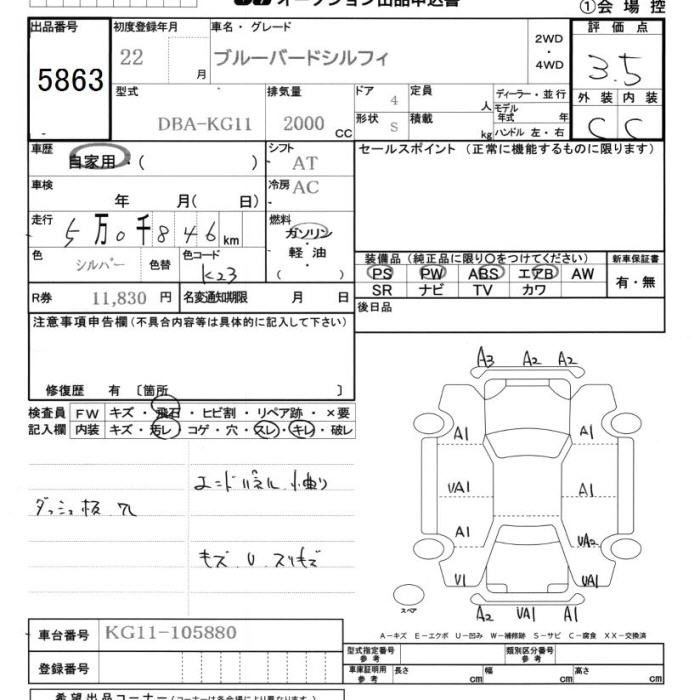 オークション出品申込書
①会場控
出品番号 初度登録年月 車名・グレード 評価点
5863 22 月 ブルーバードシルフィ 2WD・4WD 3.5
型式 排気量 ドア 4 定員 人 ディーラー・並行 外装 内装
DBA-KG11 2000 CC 形状 S 積載 kg モデル年式 年 ハンドル 左・右 C C
車歴 自家用・( ) シフト AT セールスポイント(正常に機能するものに限ります)
車検 年 月( 日) 冷房 AC
走行 5万0千846km 燃料 ガソリン 軽油 ( )
色 シルバー 色替 色コード K23
装備品(純正品に限り○をつけてください) 新車保証書
PS PW ABS エアB AW 有・無
SR ナビ TV カワ
R券 11,830 円 名変通知期限 月 日 後日品
注意事項申告欄(不具合内容等は具体的に記入して下さい)
修復歴 有 〔箇所 〕
検査員 FW キズ・飛石・ヒビ割・リペア跡・×要
記入欄 内装 キズ・汚レ・コゲ・穴・スレ・キレ・破レ
エンドパネル 小曲り
ダッシュ板 穴
キズ U スリキズ
A3 A2 A2
A1 A1
UA1 A1
A1 UA2
U1 UA1
スペア
A2 UA1 A1
A-キズ E-エクボ U-凹み W-補修跡 S-サビ C-腐食 XX-交換済
車台番号 KG11-105880
登録番号
型式指定番号 参考 類別区分番号 参考
車庫証明用 参考 長さ cm 幅 cm 高さ cm
希望出品コーナー(コーナーは各会場により異なります)